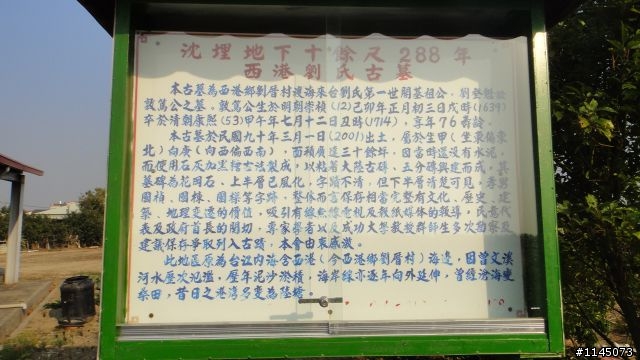 沈埋地下十餘尺288年
西港劉氏古墓
本古墓為西港鄉劉厝村渡海來台劉氏第一世開基祖公，劉
敦篤公之墓，敦篤公生於明朝崇禎(12)己卯年正月初三日戌時(1639)
卒於清朝康熙(53)甲午年七月十二日丑時(1714)，享年76壽齡。
本古墓於民國九十年三月一日(2001)出土，屬於生甲(坐東偏東
北)向庚(向西偏西南)，面積廣達三十餘坪，因當時還沒有水泥，
而使用石灰加黑糖古法製成，以粘著大陸古磚，五分磚興建而成，其
墓碑為花岡石，上半層已風化，字蹟不清，但下半層清楚可見，孝男
國禎、國棟、國樑等字跡，整体而言保存相當完整有文化、歷史、建
築、地理變遷的價值，吸引有線無線電視及報紙媒体的報導，民意代
表及政府首長的關切，專家學者以及成功大學教授群師生多次勘察及
建議保存爭取列入古蹟，本會由衷感激。
此地區原為台江內海含西港(今西港鄉劉厝村)海邊，因曾文溪
河水屢次氾濫，歷年泥沙淤積，海岸線亦逐年向外延伸，曾經滄海變
桑田，昔日之港灣多變為陸地
#1145073